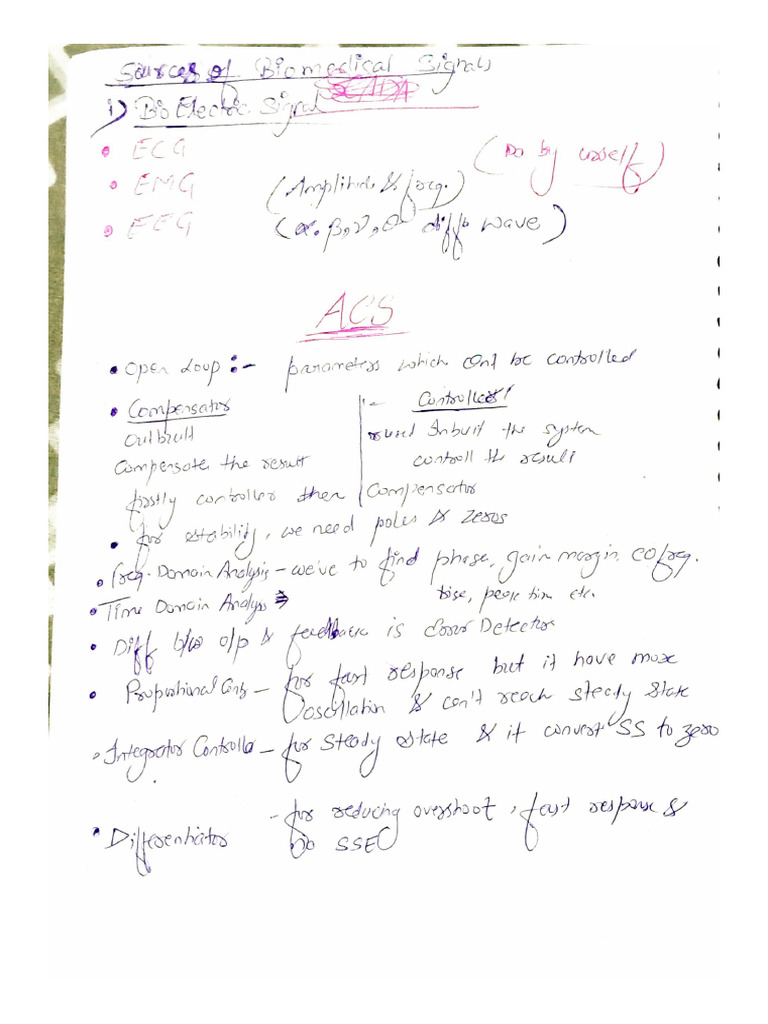 Sources of Biomedical Signals
1) Bio Electric Signal
• ECG (Do by urself)
• EMG (Amplitude & freq.)
• EEG (α, β, γ, θ diff wave)
ACS
• Open Loop :- parameters which can't be controlled
• Compensator
outbuilt
Compensate the result
firstly controller then Compensator
Controller
Inbuilt the system
controll the result
• for stability, we need poles & zeros
• freq. Domain Analysis - we've to find phase, gain margin, co freq.
• Time Domain Analysis → rise, peak tim etc.
• Diff b/w o/p & feedback is Error Detector
• Proportional - for fast response but it have more
oscillation & can't reach steady state
• Integrator Controller - for steady state & it convert SS to zero
• Differentiator - for reducing overshoot, fast response &
no SSE